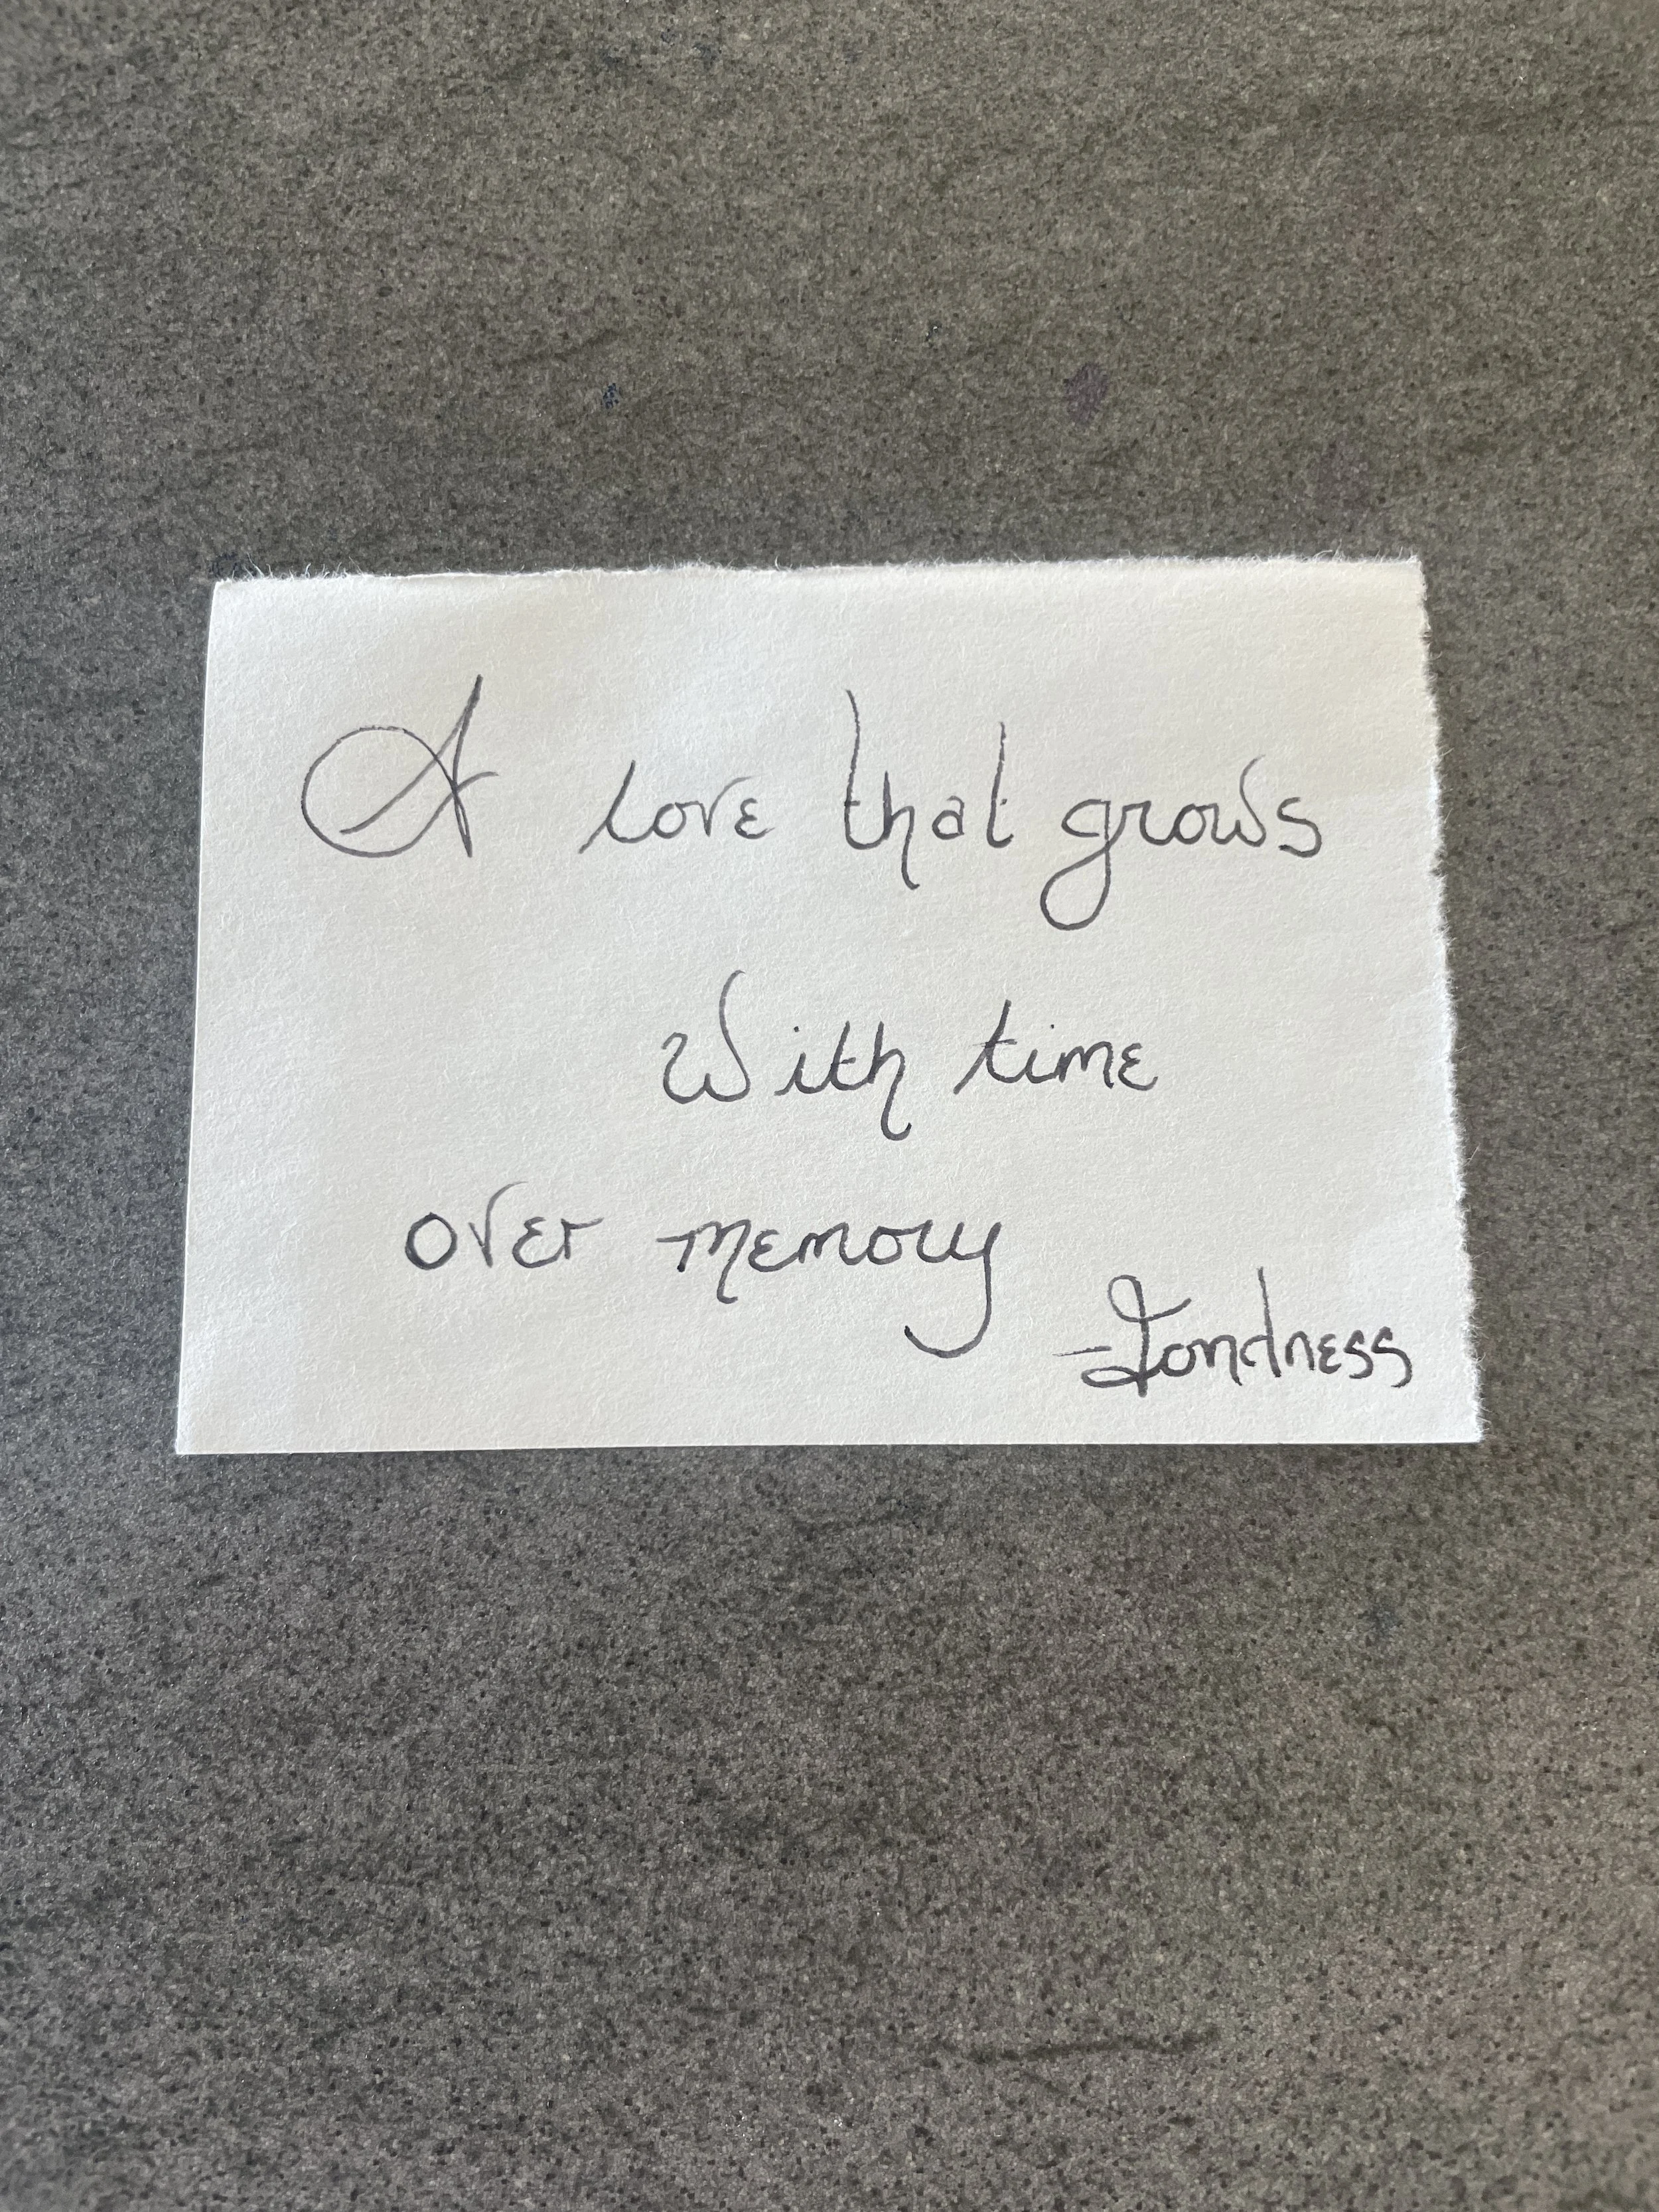 A love that grows
with time
over memory
-Fondness